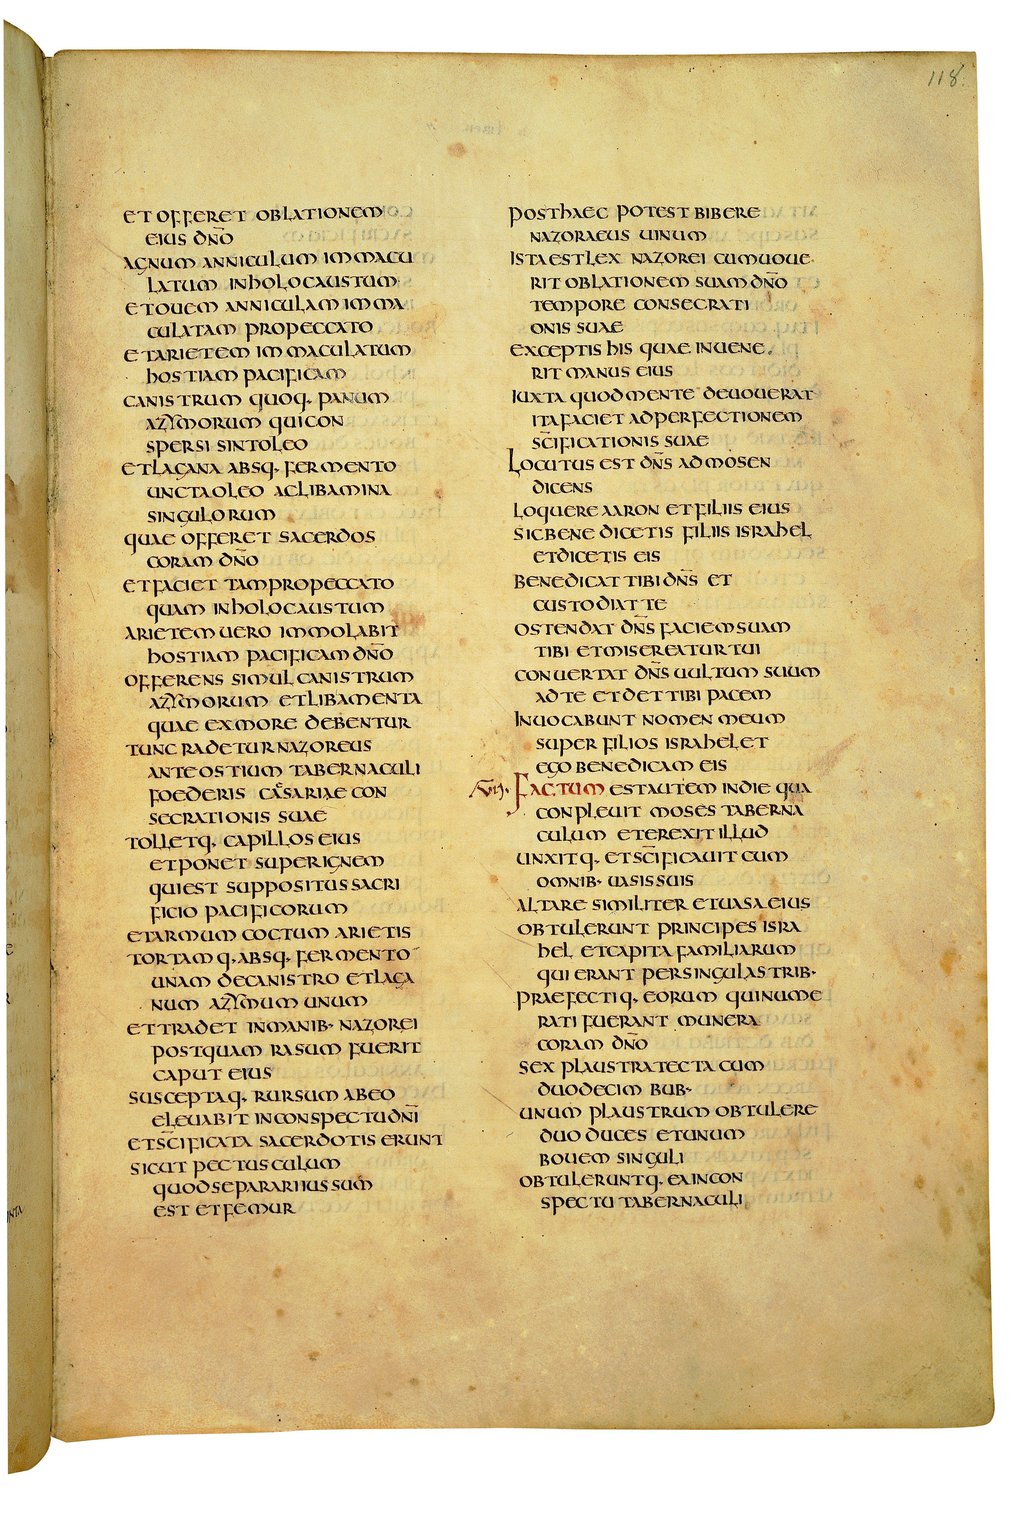 118.
ET OFFERET OBLATIONEM
EIUS DN̄O
AGNUM ANNICULUM IMMACU
LATUM INHOLOCAUSTUM
ETOUEM ANNICULAM IMMA
CULATAM PROPECCATO
ETARIETEM IMMACULATUM
HOSTIAM PACIFICAM
CANISTRUM QUOQ· PANUM
AZYMORUM QUICON
SPERSI SINTOLEO
ETLAGANA ABSQ· FERMENTO
UNCTAOLEO ACLIBAMINA
SINGULORUM
QUAE OFFERET SACERDOS
CORAM DN̄O
ETFACIET TAMPROPECCATO
QUAM INHOLOCAUSTUM
ARIETEM UERO IMMOLABIT
HOSTIAM PACIFICAM DN̄O
OFFERENS SIMUL CANISTRUM
AZYMORUM ETLIBAMENTA
QUAE EXMORE DEBENTUR
TUNC RADETUR NAZOREUS
ANTE OSTIUM TABERNACULI
FOEDERIS CAESARIAE CON
SECRATIONIS SUAE
TOLLETQ· CAPILLOS EIUS
ETPONET SUPERIGNEM
QUIEST SUPPOSITUS SACRI
FICIO PACIFICORUM
ETARMUM COCTUM ARIETIS
TORTAMQ· ABSQ· FERMENTO
UNAM DECANISTRO ETLAGA
NUM AZYMUM UNUM
ETTRADET INMANIB· NAZOREI
POSTQUAM RASUM FUERIT
CAPUT EIUS
SUSCEPTAQ· RURSUM ABEO
ELEUABIT INCONSPECTUDN̄I
ETSC̄IFICATA SACERDOTIS ERUNT
SICUT PECTUSCULUM
QUODSEPARARIIUSSUM
EST ETFEMUR
POSTHAEC POTEST BIBERE
NAZORAEUS UINUM
ISTAESTLEX NAZOREI CUMUOUE
RIT OBLATIONEM SUAM DN̄O
TEMPORE CONSECRATI
ONIS SUAE
EXCEPTIS HIS QUAE INUENE
RIT MANUS EIUS
IUXTA QUODMENTE DEUOUERAT
ITAFACIET ADPERFECTIONEM
SC̄IFICATIONIS SUAE
LOCUTUS EST DN̄S ADMOSEN
DICENS
LOQUERE AARON ETFILIIS EIUS
SICBENEDICETIS FILIIS ISRAHEL
ETDICETIS EIS
BENEDICAT TIBI DN̄S ET
CUSTODIAT TE
OSTENDAT DN̄S FACIEMSUAM
TIBI ETMISEREATUR TUI
CONUERTAT DN̄S UULTUM SUUM
ADTE ETDET TIBI PACEM
INUOCABUNT NOMEN MEUM
SUPER FILIOS ISRAHELET
EGO BENEDICAM EIS
FACTUM ESTAUTEM INDIE QUA
CONPLEUIT MOSES TABERNA
CULUM ETEREXIT ILLUD
UNXITQ· ETSC̄IFICAUIT CUM
OMNIB· UASISSUIS
ALTARE SIMILITER ETUASAEIUS
OBTULERUNT PRINCIPES ISRA
HEL ETCAPITA FAMILIARUM
QUI ERANT PERSINGULASTRIB·
PRAEFECTIQ· EORUM QUINUME
RATI FUERANT MUNERA
CORAM DN̄O
SEX PLAUSTRATECTA CUM
DUODECIM BUB·
UNUM PLAUSTRUM OBTULERE
DUO DUCES ETUNUM
BOUEM SINGULI
OBTULERUNTQ· EAINCON
SPECTU TABERNACULI